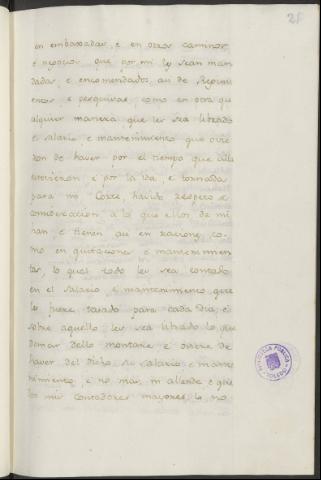 28
en embaxadas, e en otros caminos,
e negocios que por mi les sean man
dadas, e encomendados, asi de Regimi
entos e pesquisas, como en otra qu
alquier manera que les sea librado
el salario, e mantenimiento que ovie
ren de haver por el tiempo que alla
estovieron e por la ida, e tornada
para mi Corte, havido respeto e
consideracion, a lo que ellos de mi
han e tienen asi en raciones, co-
mo en quitaciones e mantenimien
tos, lo qual todo les sea contado
en el salario e mantenimiento, que
les fuere tasado para cada dia, e
sobre aquello les sea librado lo que
demas dello montare e oviere de
haver del dicho su salario, e mante
nimiento, e no mas, ni allende e que
los mis contadores mayores lo no
BIBLIOTECA PUBLICA
TOLEDO